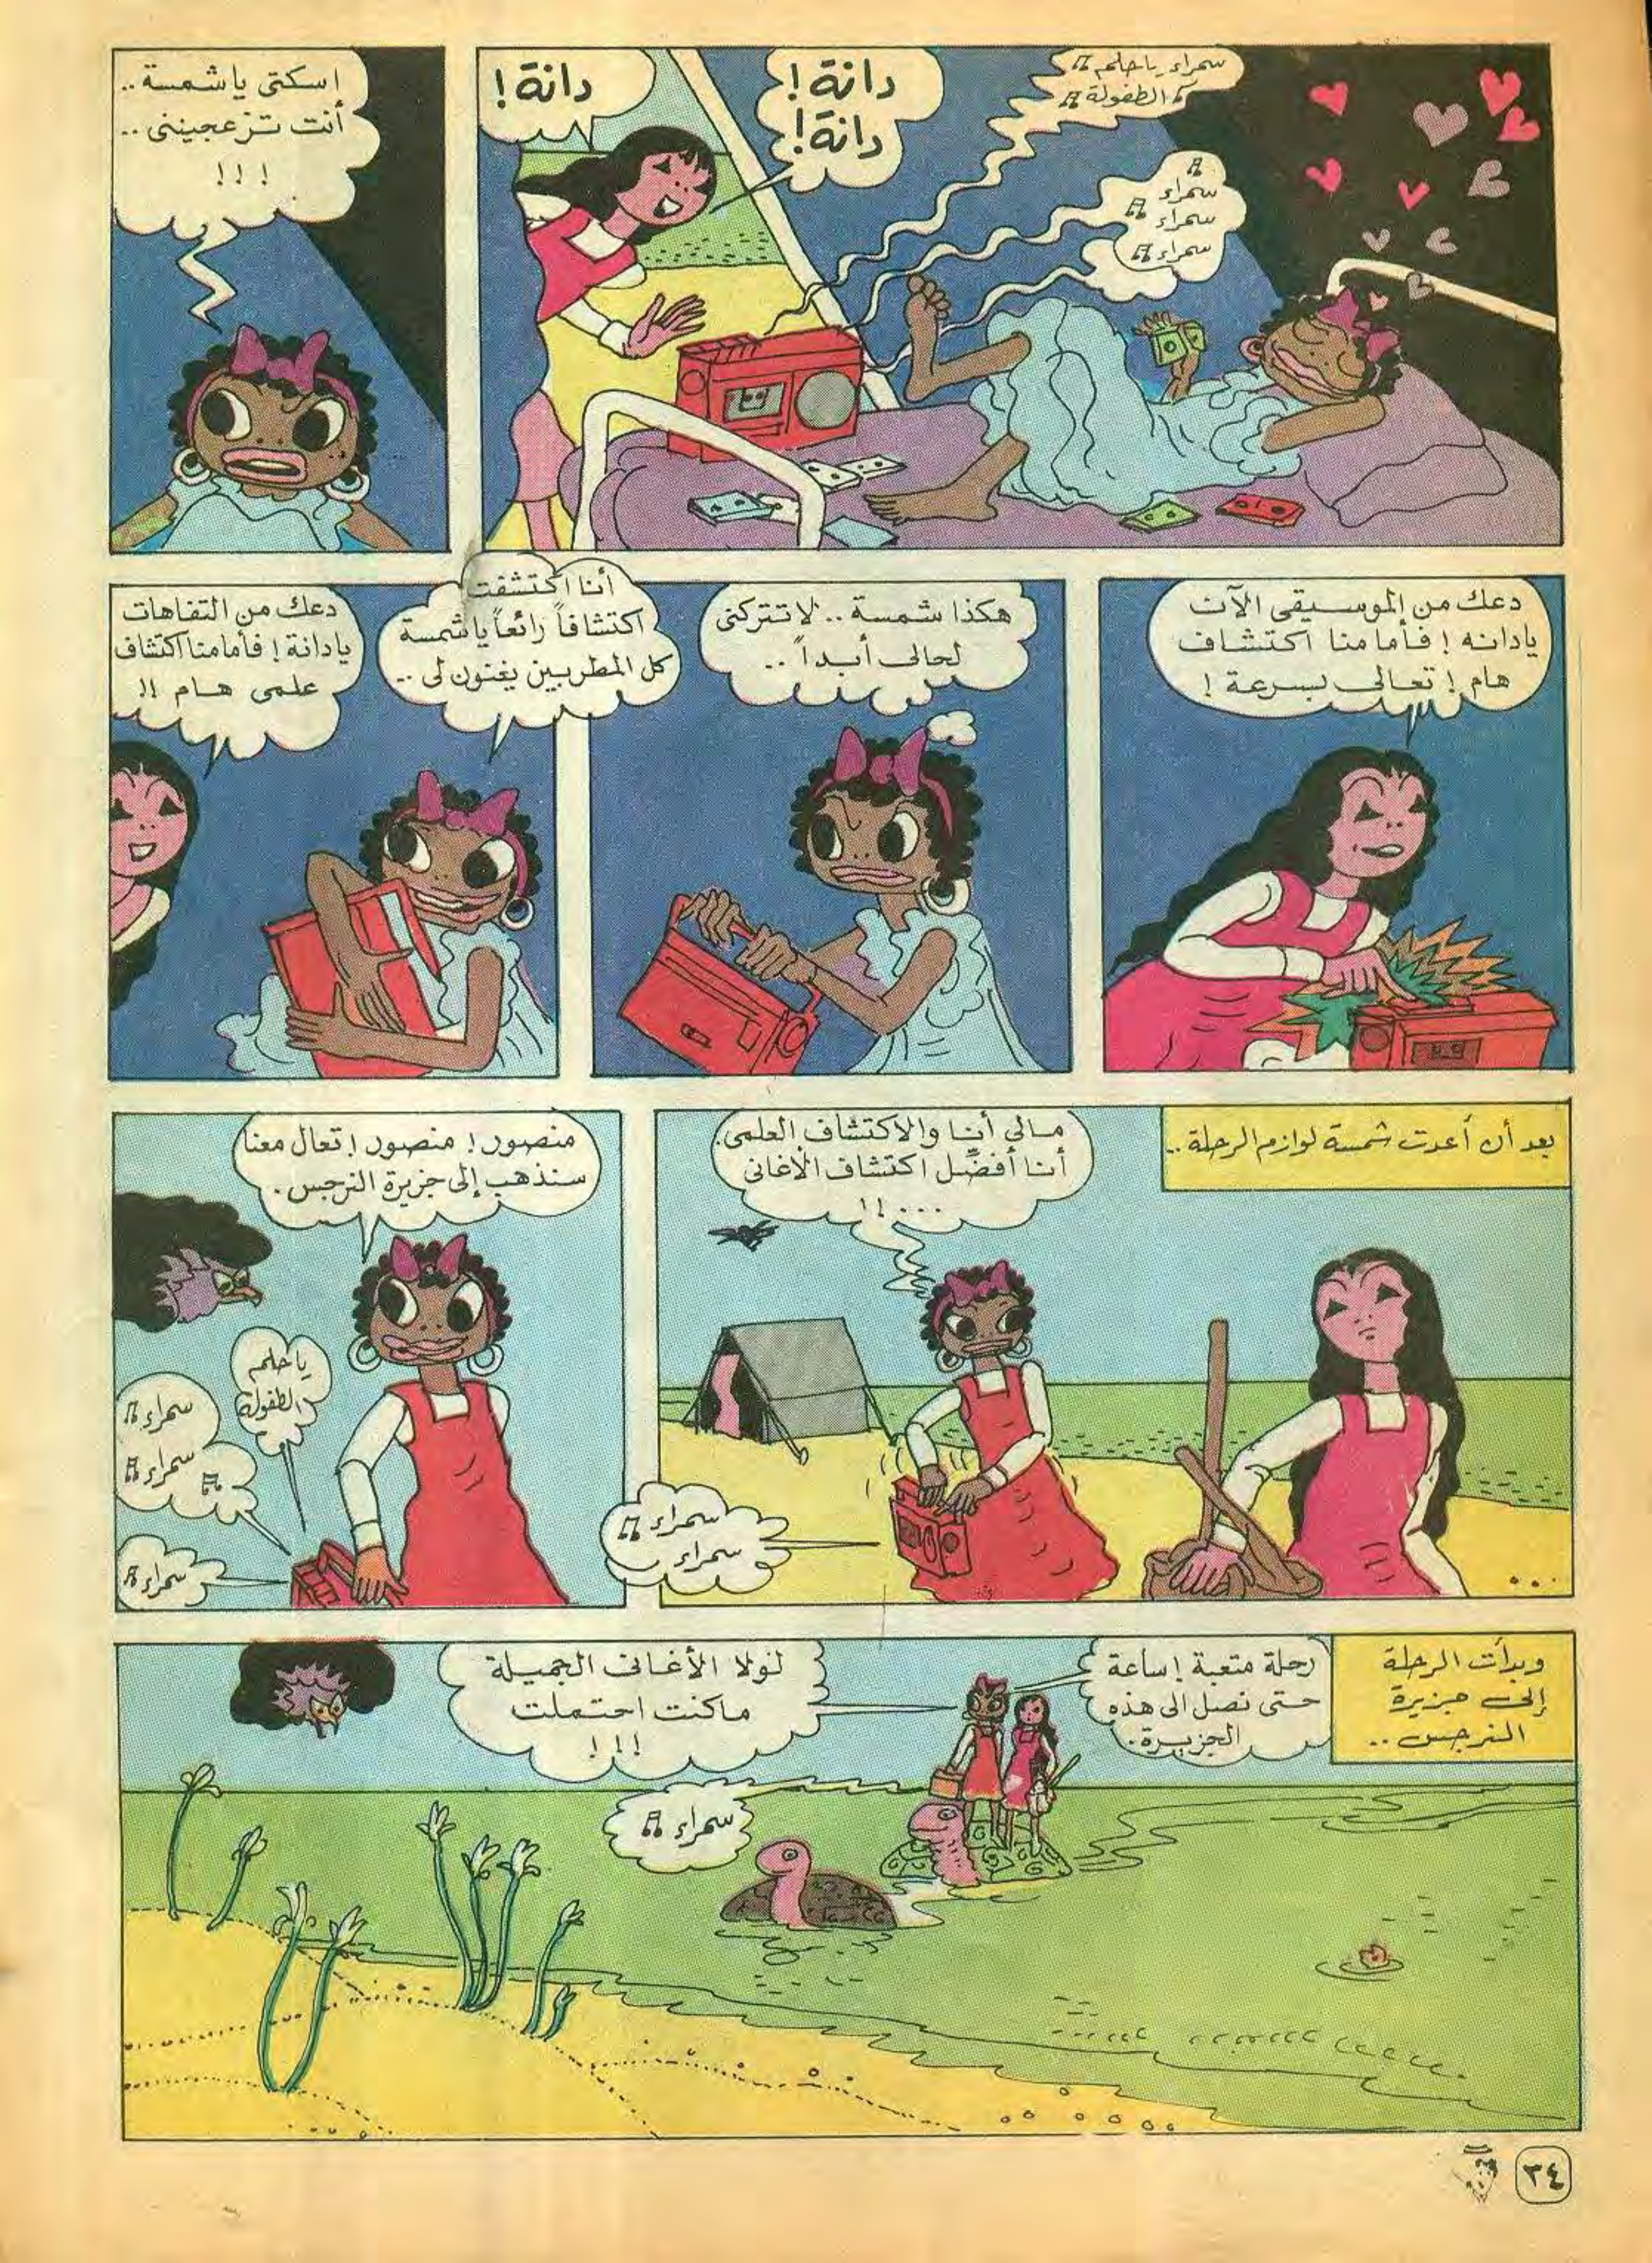 دانة!
دانة!
دانة!
سمراء ياحلم
الطفولة
سمراء
سمراء
سمراء
اسكتى ياشمسة..
أنت تزعجيننى..
!!!
دعك من الموسيقى الآن
يادانه! فأمامنا اكتشاف
هام! تعالى بسرعة!
هكذا شمسة.. لا تتركنى
لحالى أبداً..
أنا اكتشفت
اكتشافاً رائعاً ياشمسة
كل المطربين يغنون لى..
دعك من التفاهات
يادانة! فأمامنا اكتشاف
علمى هام!!
بعد أن أعدت شمسة لوازم الرحلة..
مالى أنا والاكتشاف العلمى.
أنا أفضّل اكتشاف الأغانى
...!!
سمراء
سمراء
منصور! منصور! تعال معنا
سنذهب إلى جزيرة النرجس.
ياحلم
الطفولة
سمراء
سمراء
سمراء
وبدأت الرحلة
إلى جزيرة
النرجس..
رحلة متعبة! ساعة
حتى نصل الى هذه
الجزيرة.
لولا الأغانى الجميلة
ماكنت احتملت
!!!
سمراء
٣٤